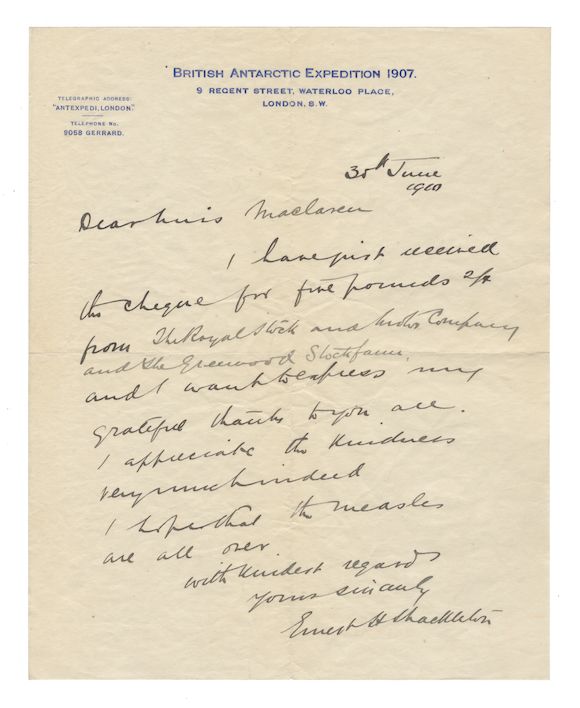 BRITISH ANTARCTIC EXPEDITION 1907.
9 REGENT STREET, WATERLOO PLACE,
LONDON, S.W.
TELEGRAPHIC ADDRESS:
"ANTEXPEDI, LONDON."
TELEPHONE No.
9058 GERRARD.
30th June
1910
Dear Miss Maclaren
I have just received
the cheque for five pounds 2/-
from The Royal Stock and Motor Company
and the Greenwood Stockfarm,
and I want to express my
grateful thanks to you all.
I appreciate the kindness
very much indeed
I hope that the measles
are all over.
with kindest regards
yours sincerely
Ernest H Shackleton